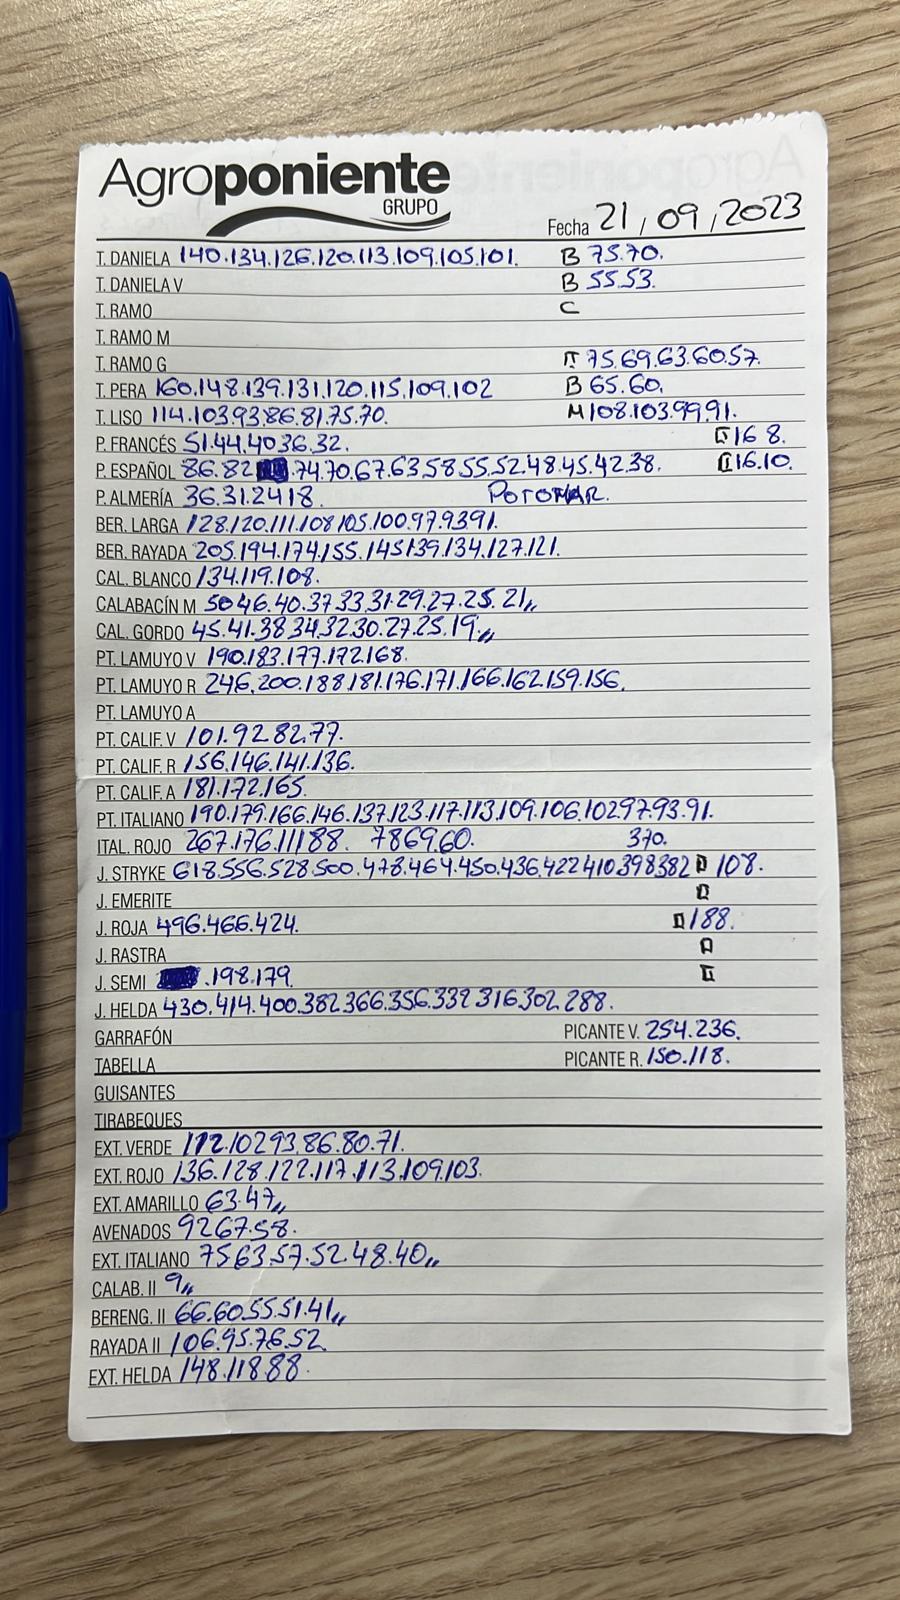 Agroponiente
GRUPO
Fecha 21/09/2023
T. DANIELA 140.134.126.120.113.109.105.101. B 75.70.
T. DANIELA V B 55.53.
T. RAMO C
T. RAMO M
T. RAMO G II 75.69.63.60.57.
T. PERA 160.148.139.131.120.115.109.102 B 65.60.
T. LISO 114.103.93.86.81.75.70. M 108.103.99.91.
P. FRANCÉS 51.44.40.36.32. II 16 8.
P. ESPAÑOL 86.82 .74.70.67.63.58.55.52.48.45.42.38. II 16.10.
P. ALMERÍA 36.31.24.18. POTOMAR.
BER. LARGA 128.120.111.108.105.100.97.93.91.
BER. RAYADA 205.194.174.155.145.139.134.127.121.
CAL. BLANCO 134.119.108.
CALABACÍN M 50.46.40.37.33.31.29.27.25.21,,
CAL. GORDO 45.41.38.34.32.30.27.25.19,,
PT. LAMUYO V 190.183.177.172.168.
PT. LAMUYO R 246.200.188.181.176.171.166.162.159.156.
PT. LAMUYO A
PT. CALIF. V 101.92.82.77.
PT. CALIF. R 156.146.141.136.
PT. CALIF. A 181.172.165.
PT. ITALIANO 190.179.166.146.137.123.117.113.109.106.102.97.93.91.
ITAL. ROJO 267.176.111.88. 78.69.60. 370.
J. STRYKE 618.556.528.500.478.464.450.436.422.410.398.382 II 108.
J. EMERITE II
J. ROJA 496.466.424. II 188.
J. RASTRA II
J. SEMI .198.179. II
J. HELDA 430.414.400.382.366.356.332.316.302.288.
GARRAFÓN PICANTE V. 254.236.
TABELLA PICANTE R. 150.118.
GUISANTES
TIRABEQUES
EXT. VERDE 112.102.93.86.80.71.
EXT. ROJO 136.128.122.117.113.109.103.
EXT. AMARILLO 63.47,,
AVENADOS 92.67.58.
EXT. ITALIANO 75.63.57.52.48.40,,
CALAB. II 9,,
BERENG. II 66.60.55.51.41,,
RAYADA II 106.95.76.52
EXT. HELDA 148.118.88.